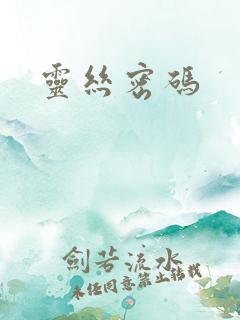 靈絲密碼
劍若流水
未經同意禁止轉載